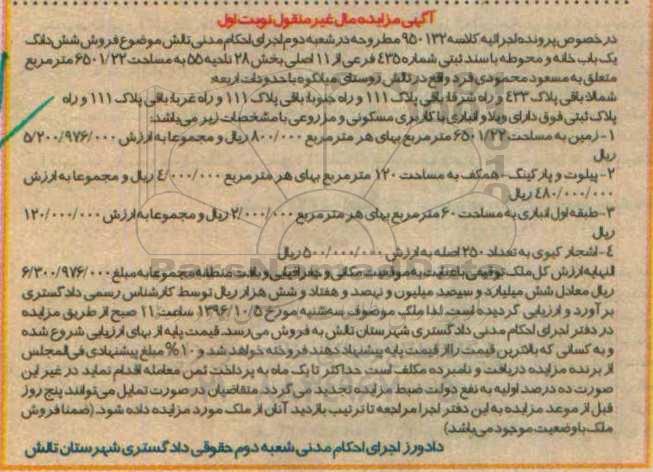 آگهی مزایده مال غیر منقول نوبت اول
در خصوص پرونده اجرائیه کلاسه 950132 مطروحه در شعبه دوم اجرای احکام مدنی تالش موضوع فروش شش دانگ
یک باب خانه و محوطه با سند ثبتی شماره 435 فرعی از 11 اصلی بخش 28 ناحیه 55 به مساحت 6501/22 متر مربع
متعلق به مسعود محمودی فرد واقع در تالش روستای میانکوه با حدودات اربعه:
شمالا باقی پلاک 433 و راه شرقا باقی پلاک 111 و راه جنوبا باقی پلاک 111 و راه غربا باقی پلاک 111 و راه
پلاک ثبتی فوق دارای ویلا و انباری با کاربری مسکونی و مزروعی با مشخصات زیر می باشد:
1- زمین به مساحت 6501/22 متر مربع بهای هر متر مربع 800/000 ریال و مجموعا به ارزش 5/200/976/000
ریال
2- پیلوت و پارکینگ - همکف به مساحت 120 متر مربع بهای هر متر مربع 4/000/000 ریال و مجموعا به ارزش
480/000/000 ریال
3- طبقه اول انباری به مساحت 60 متر مربع بهای هر متر مربع 2/000/000 ریال و مجموعا به ارزش 120/000/000
ریال
4- اشجار کیوی به تعداد 250 اصله به ارزش 500/000/000 ریال
النهایه ارزش کل ملک توقیفی با عنایت به موقعیت مکانی و جغرافیایی و بافت منطقه مجموعا به مبلغ 6/300/976/000
ریال معادل شش میلیارد و سیصد میلیون و نهصد و هفتاد و شش هزار ریال توسط کارشناس رسمی دادگستری
برآورد و ارزیابی گردیده است. لذا ملک موصوف سه شنبه مورخ 1396/10/5 ساعت 11 صبح از طریق مزایده
در دفتر اجرای احکام مدنی دادگستری شهرستان تالش به فروش می رسد. قیمت پایه از بهای ارزیابی شروع شده
و به کسانی که بالاترین قیمت را از قیمت پایه پیشنهاد دهند فروخته خواهد شد و 10% مبلغ پیشنهادی فی المجلس
از برنده مزایده دریافت و نامبرده مکلف است حداکثر تا یک ماه به پرداخت ثمن معامله اقدام نماید در غیر این
صورت ده درصد اولیه به نفع دولت ضبط مزایده تجدید می گردد. متقاضیان در صورت تمایل می توانند پنج روز
قبل از موعد مزایده به این دفتر اجرا مراجعه تا ترتیب بازدید آنان از ملک مورد مزایده داده شود. (ضمنا فروش
ملک با وضعیت موجود می باشد)
دادورز اجرای احکام مدنی شعبه دوم حقوقی دادگستری شهرستان تالش